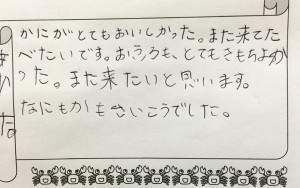 かにがとてもおいしかった。また来てた
べたいです。おふろも、とてもきもちよか
った。また来たいと思います。
なにもかもさいこうでした。